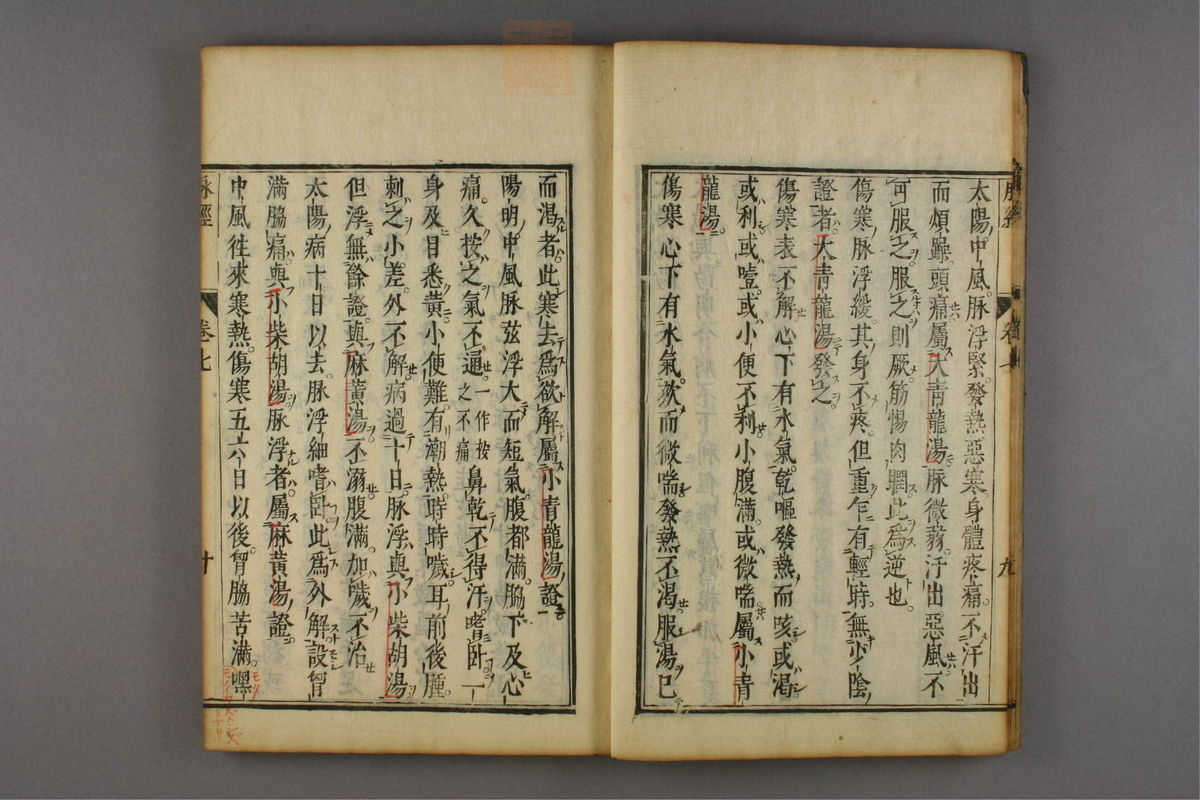 太陽中風脉浮緊發熱惡寒身體疼痛不汗出
而煩躁頭痛屬大青龍湯脉微弱汗出惡風不
可服之服之則厥筋惕肉瞤此爲逆也
傷寒脉浮緩其身不疼但重乍有輕時無少陰
證者大青龍湯發之
傷寒表不解心下有水氣乾嘔發熱而咳或渴
或利或噎或小便不利小腹滿或微喘屬小青
龍湯
傷寒心下有水氣欬而微喘發熱不渴服湯已
卷七
九
而渴者此寒去爲欲解屬小青龍湯證
陽明中風脉弦浮大而短氣腹都滿脇下及心
痛久按之氣不通一作按之不痛鼻乾不得汗嗜卧一
身及目悉黄小便難有潮熱時時噦耳前後腫
刺之小差外不解病過十日脉浮與小柴胡湯
但浮無餘證與麻黄湯不溺腹滿加噦不治
太陽病十日以去脉浮細嗜卧此爲外解設胷
滿脇痛與小柴胡湯脉浮者屬麻黄湯證
中風徃來寒熱傷寒五六日以後胷脇苦滿嘿
脉經
卷七
十